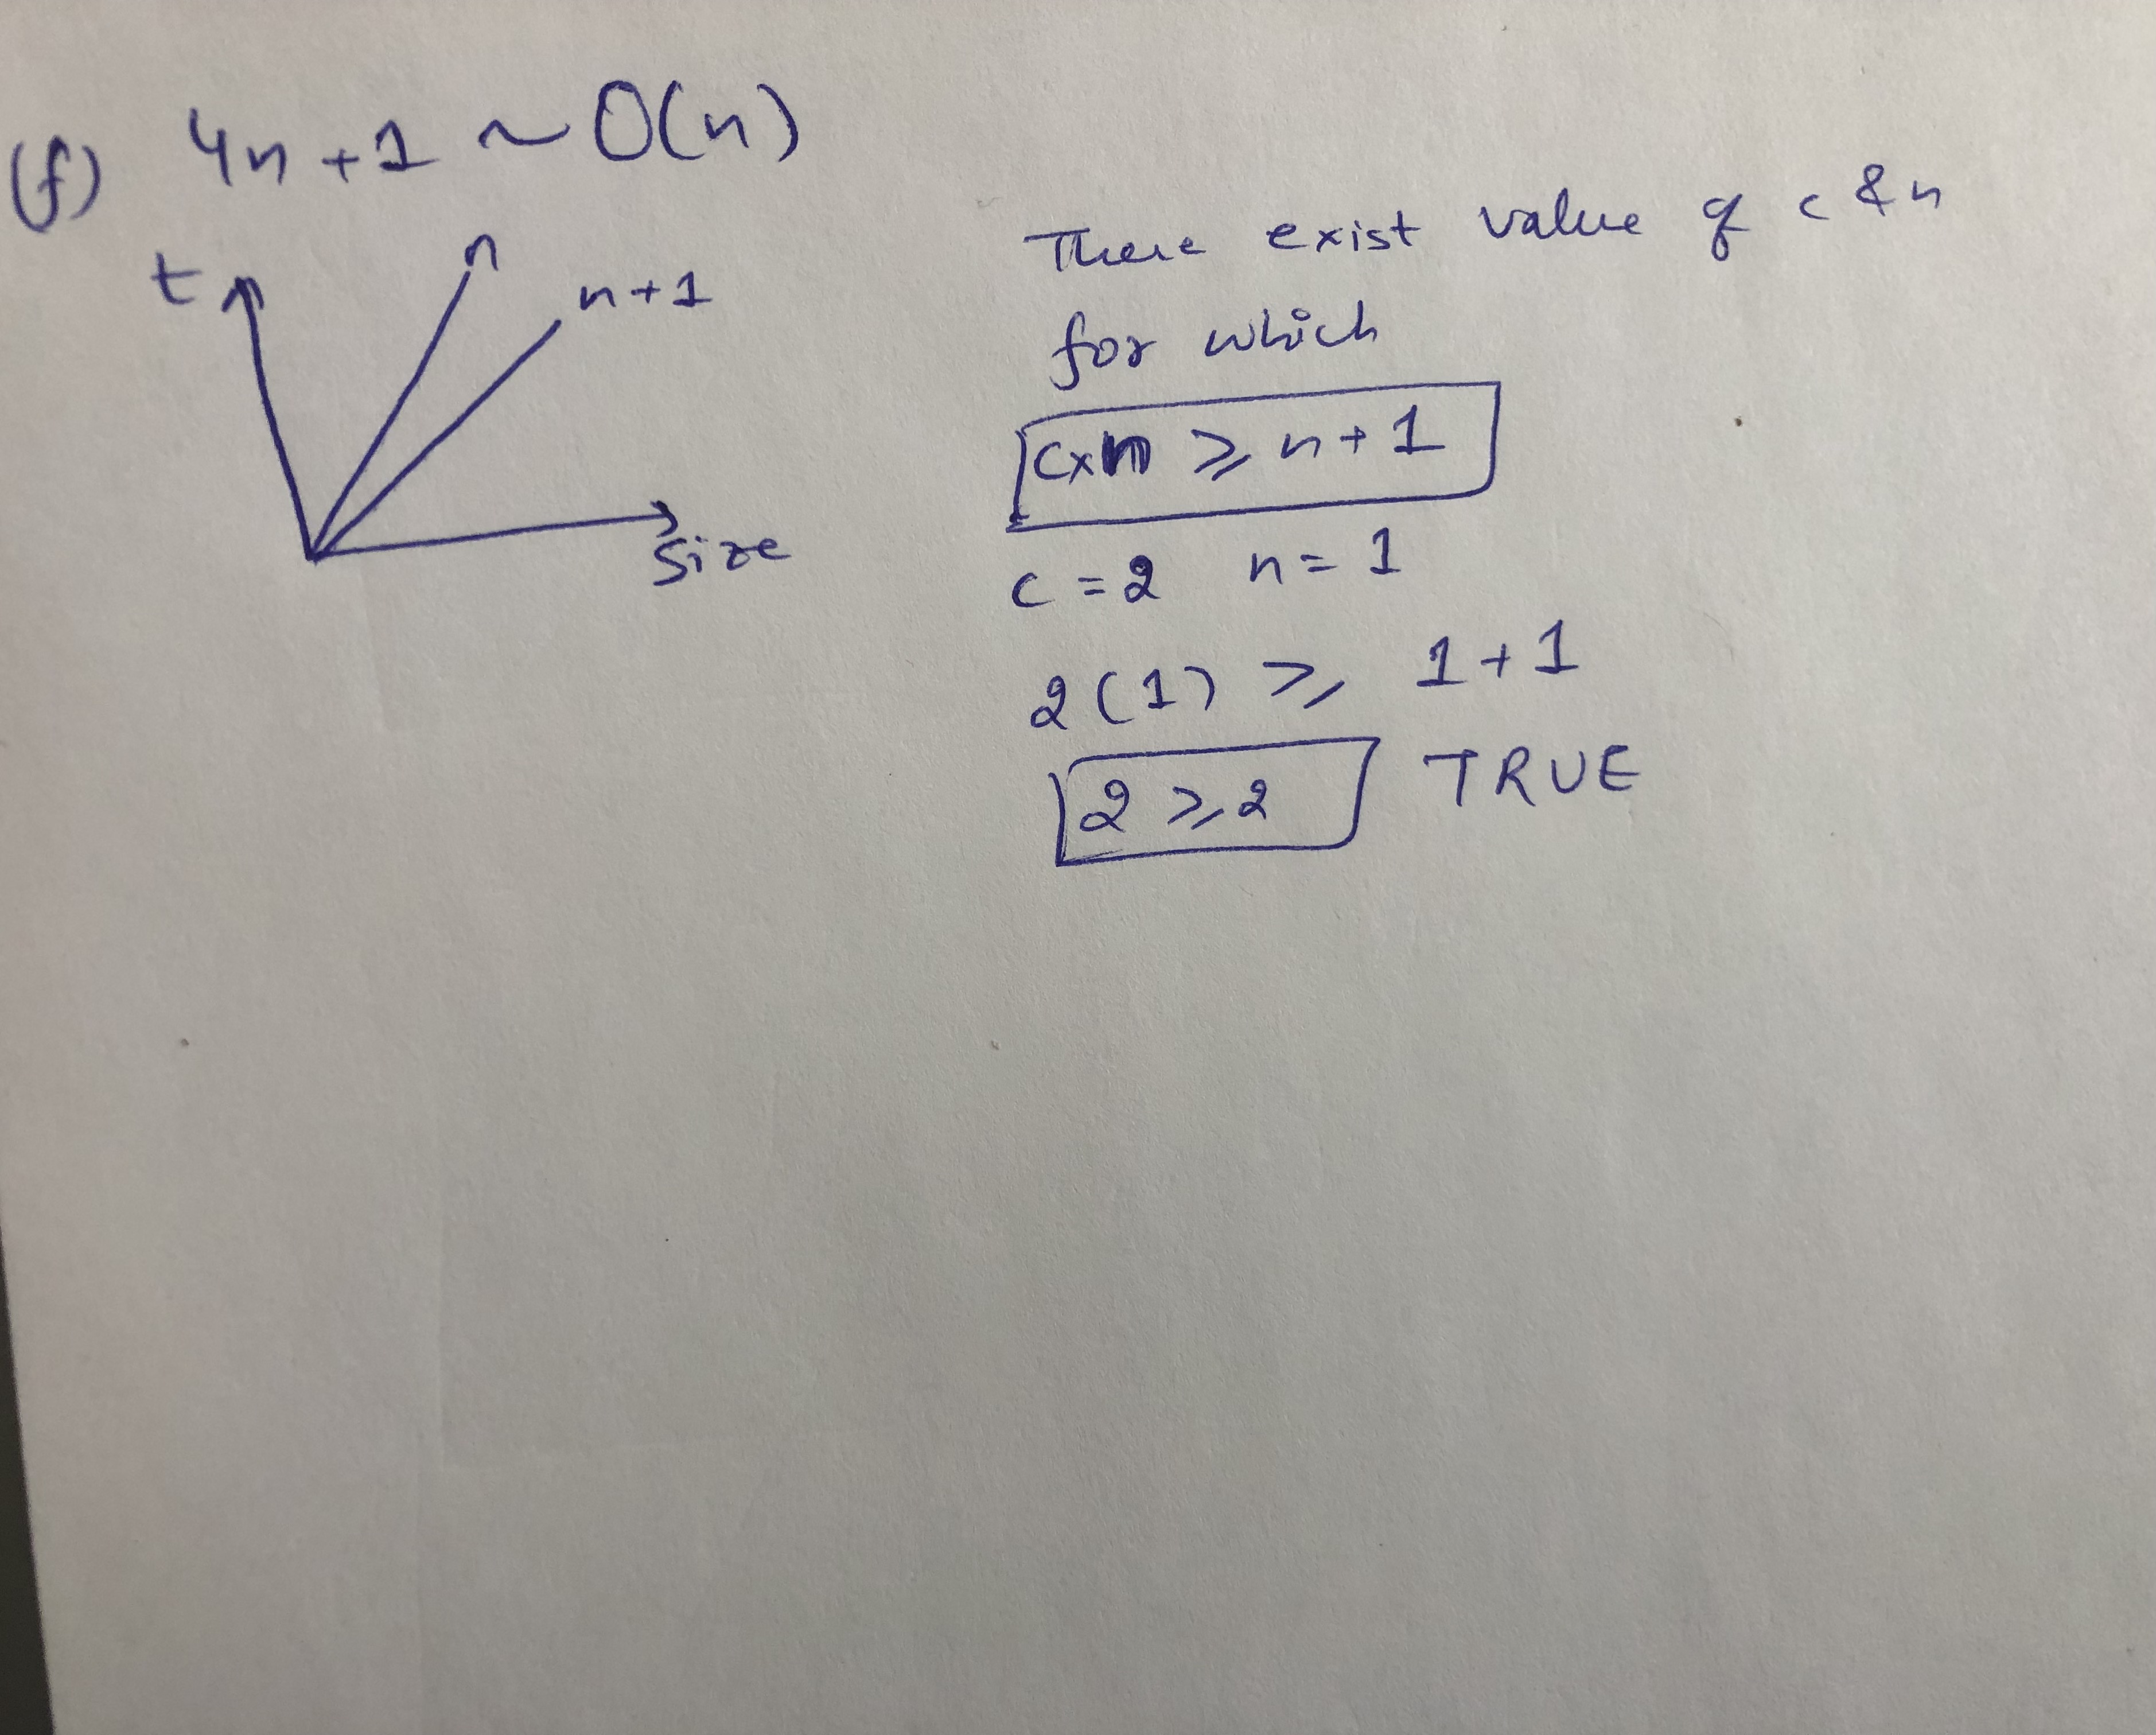 (f) 4n+1 ~ O(n)
t
n
n+1
Size
There exist value of c & n
for which
c×n ⩾ n+1
c=2 n=1
2(1) ⩾ 1+1
2 ⩾ 2 TRUE